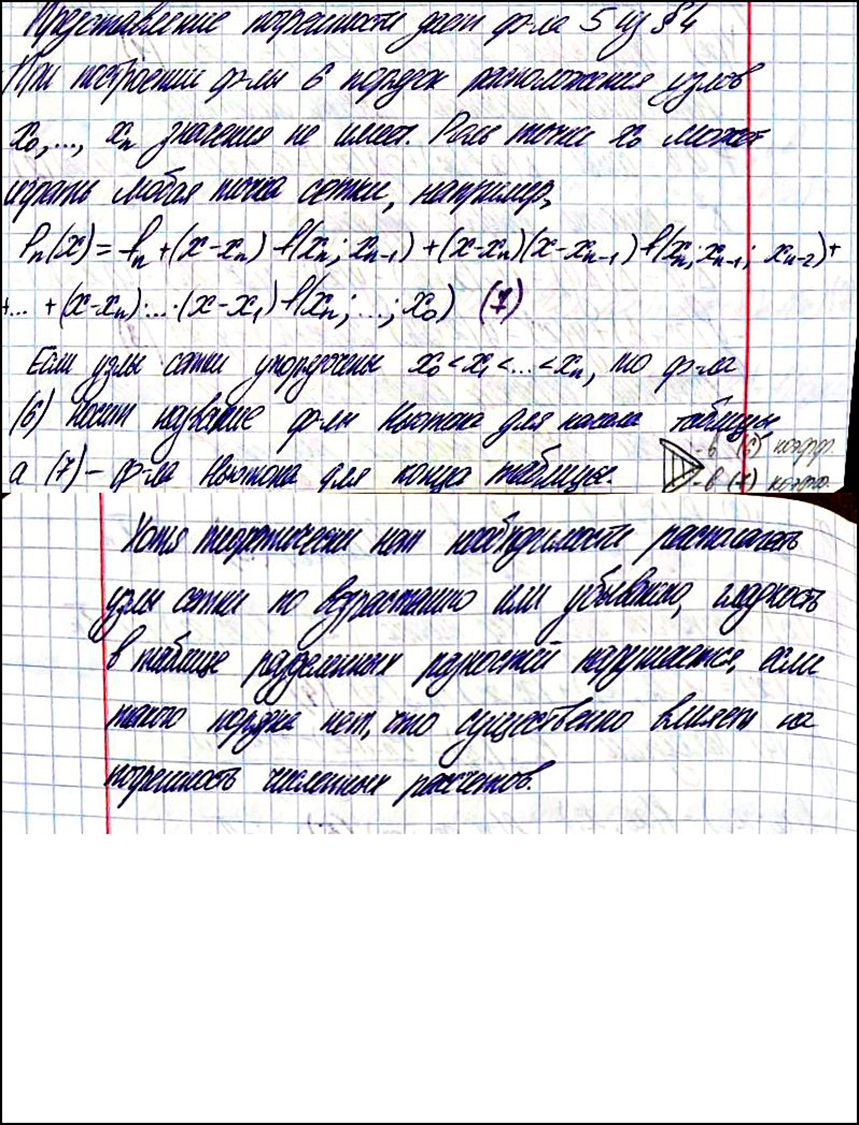 Представление погрешности дает ф-ла 5 из §4
При построении ф-лы 6 порядок расположения узлов
x₀,..., xₙ значения не имеет. Роль точки x₀ может
играть любая точка сетки, например,
Pₙ(x) = fₙ + (x-xₙ) f(xₙ; xₙ₋₁) + (x-xₙ)(x-xₙ₋₁) f(xₙ; xₙ₋₁; xₙ₋₂) +
+... + (x-xₙ)·...·(x-x₁) f(xₙ; ...; x₀) (7)
Если узлы сетки упорядочены x₀ < x₁ < ... < xₙ, то ф-ла
(6) носит название ф-лы Ньютона для начала таблицы
а (7) – ф-ла Ньютона для конца таблицы.
- в (6) коэфф.
- в (7) коэфф.
Хотя теоретически нет необходимости располагать
узлы сетки по возрастанию или убыванию, гладкость
в таблице разделенных разностей нарушается, если
такого порядка нет, что существенно влияет на
погрешность численных расчетов.